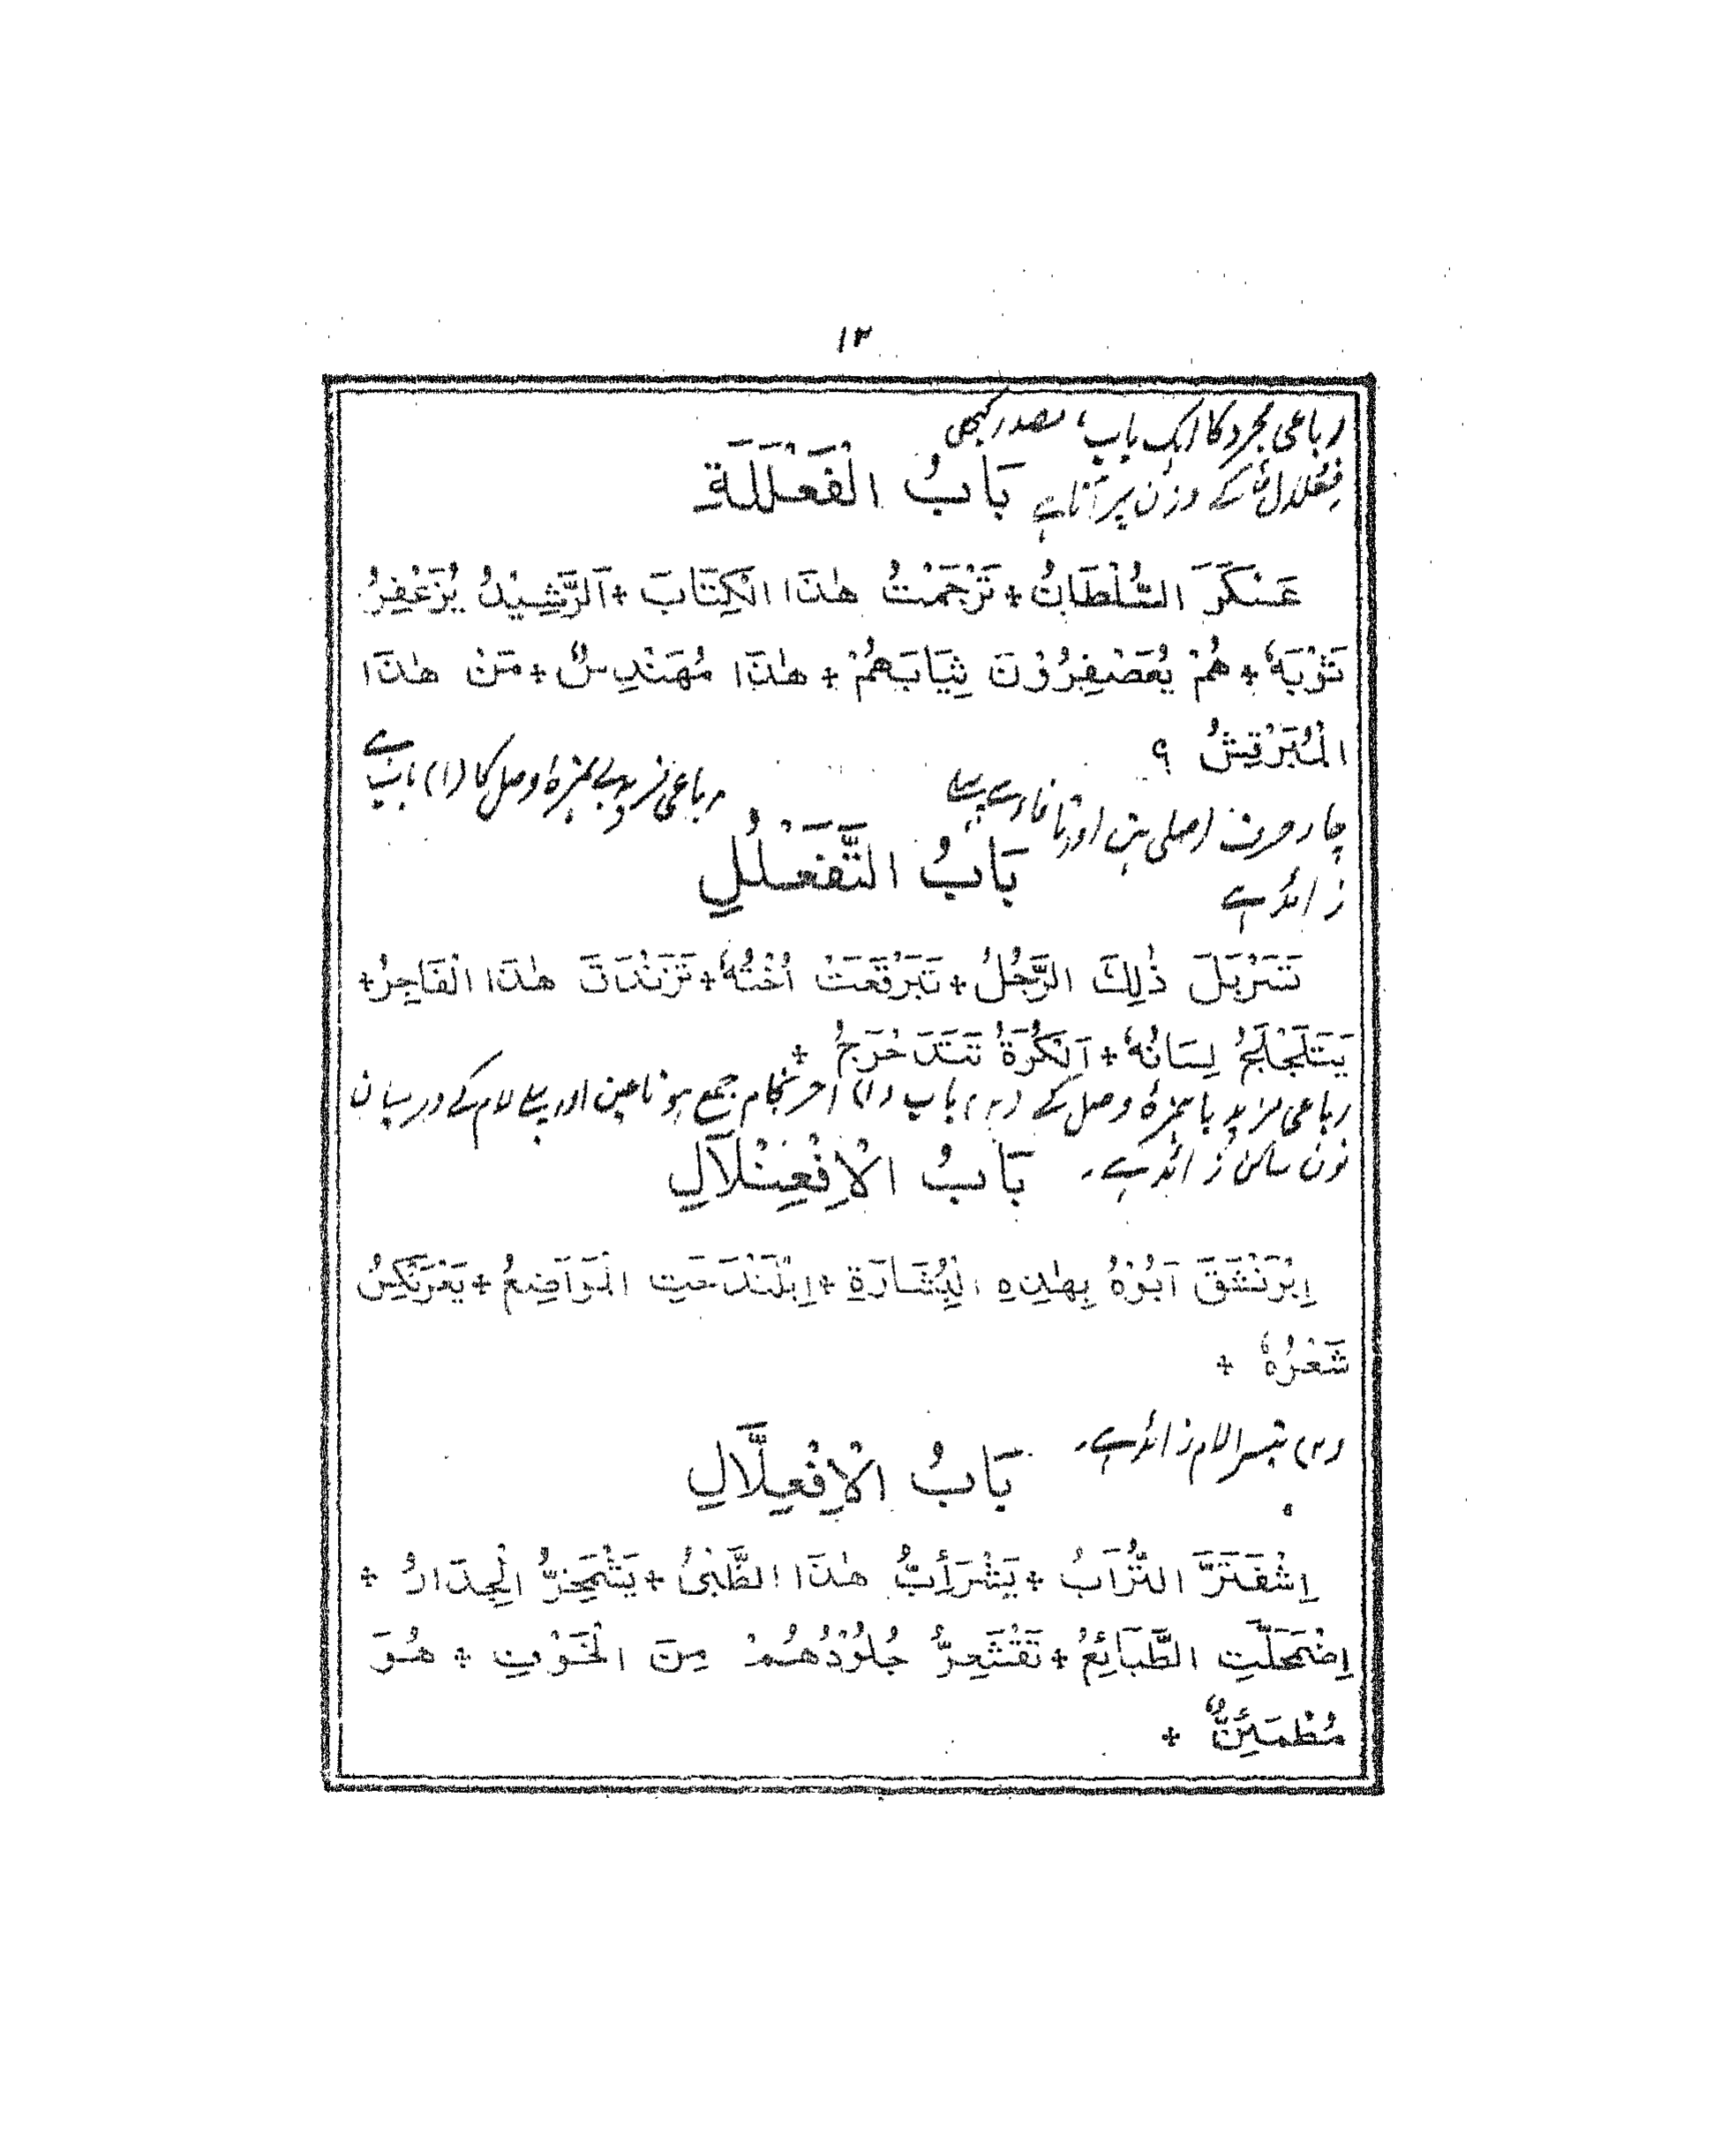 ۱۲
رباعی مجرد کا ایک باب، مصدر کبھی
فِعْلَالٌ کے وزن پر آتا ہے
بَابُ الْفَعْلَلَةِ
عَسْكَرَ السُّلْطَانُ + تَرْجَمْتُ هٰذَا الْكِتَابَ + اَلرَّشِيْدُ يُزَعْفِرُ
ثَوْبَهٗ + هُمْ يُعَصْفِرُوْنَ ثِيَابَهُمْ + هٰذَا مُهَنْدِسٌ + مَنْ هٰذَا
الْمُبَرْقِشُ ؟
رباعی مزید بے ہمزۂ وصل کا (۱) باب ہے
چار حرف اصلی ہیں اور تا فا سے پہلے
زائد ہے
بَابُ التَّفَعْلُلِ
تَسَرْبَلَ ذٰلِكَ الرَّجُلُ + تَبَرْقَعَتْ اُخْتُهٗ + تَزَنْدَقَ هٰذَا الْفَاجِرُ +
يَتَلَجْلَجُ لِسَانُهٗ + اَلْكُرَةُ تَتَدَحْرَجُ +
رباعی مزید با ہمزۂ وصل کے (۲) باب (۱) احرنجام جمع ہونا عین اور پہلے لام کے درمیان
نون ساکن زائد ہے۔
بَابُ الْاِفْعِنْلَالِ
اِبْرَنْشَقَ اَبُوْهُ بِهٰذِهِ الْبِشَارَةِ + اِبْلَنْدَحَتِ الْمَوَاضِعُ + يَعْرَنْكِسُ
شَعْرُهٗ +
(۲) تیسرا لام زائد ہے۔
بَابُ الْاِفْعِلَّالِ
اِشْفَتَرَّ التُّرَابُ + يَشْرَأِبُّ هٰذَا الظَّبْیُ + يَشْمَخِرُّ الْجِدَارُ +
اِضْمَحَلَّتِ الطَّبَائِعُ + تَقْشَعِرُّ جُلُوْدُهُمْ مِنَ الْخَوْفِ + هُوَ
مُطْمَئِنٌّ +